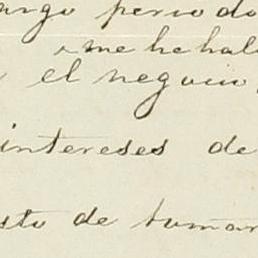 argo periodo
me he hal
el negocio
intereses de
sto de tomar